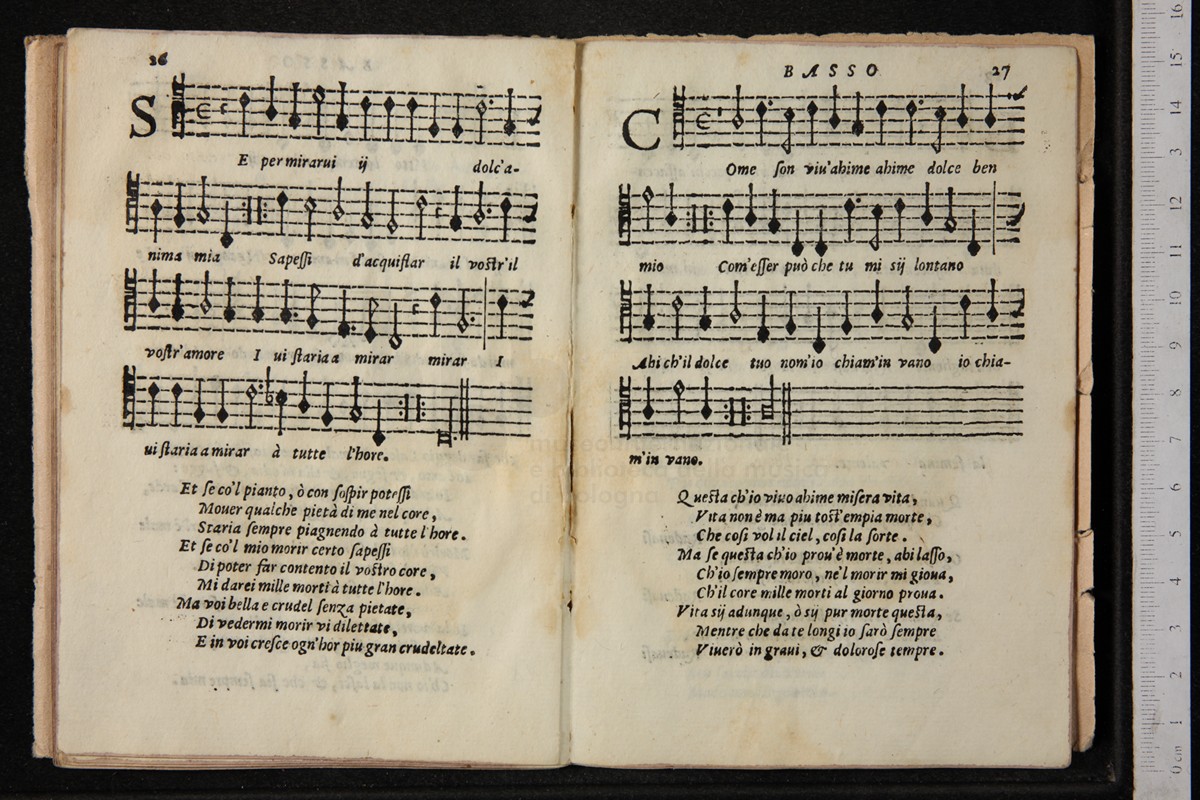 26
S
E per mirarui ij dolc'a-
nima mia Sapessi d'acquistar il vostr'il
vostr'amore I ui staria a mirar mirar I
ui staria a mirar à tutte l'hore.
Et se co'l pianto, ò con sospir potessi
Mouer qualche pietà di me nel core,
Staria sempre piagnendo à tutte l'hore.
Et se co'l mio morir certo sapessi
Di poter far contento il vostro core,
Mi darei mille morti à tutte l'hore.
Ma voi bella e crudel senza pietate,
Di vedermi morir vi dilettate,
E in voi cresce ogn'hor piu gran crudeltate.
BASSO 27
C
Ome son viu'ahime ahime dolce ben
mio Com'esser può che tu mi sij lontano
Ahi ch'il dolce tuo nom'io chiam'in vano io chia-
m'in vano.
Questa ch'io viuo ahime misera vita,
Vita non è ma piu tost'empia morte,
Che cosi vol il ciel, cosi la sorte.
Ma se questa ch'io prou'è morte, ahi lasso,
Ch'io sempre moro, ne'l morir mi gioua,
Ch'il core mille morti al giorno proua.
Vita sij adunque, ò sij pur morte questa,
Mentre che da te longi io sarò sempre
Viuerò in graui, & dolorose tempre.
museo internazionale
e biblioteca della musica
di bologna
0 cm 1 2 3 4 5 6 7 8 9 10 11 12 13 14 15 16